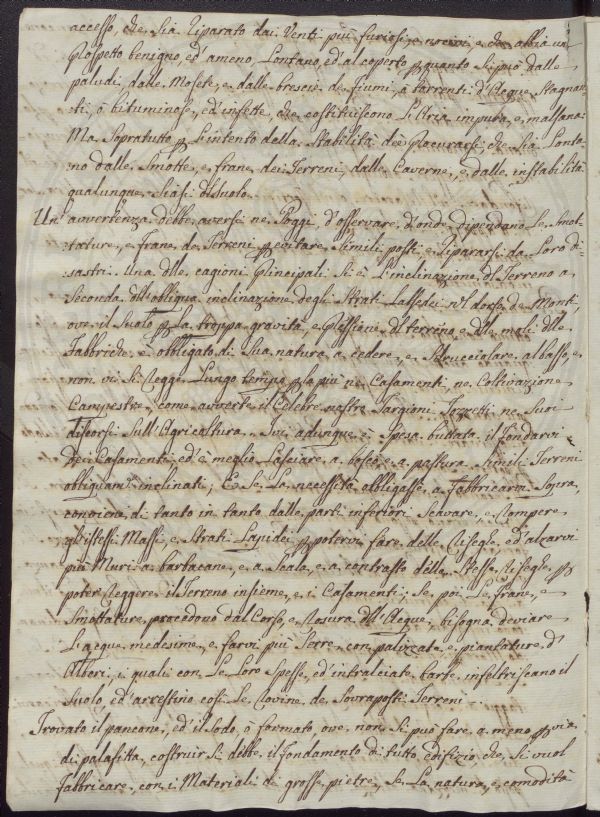 accesso, che sia riparato dai Venti più furiosi, e nocivi, e che abbia un
Prospetto benigno, ed' ameno, Lontano, ed' al coperto p quanto si può dalle
paludi, dalle Mofete, e dalle brescie de fiumi, ò torrenti d'Acque Stagnan=
ti, ò bituminose, ed' infette, che costituiscono L'Aria impura, e malsana:
Ma Sopratutto p L'intento della Stabilità deè Procurarsi, che sia Lonta=
no dalle Smotte, e frane dei Terreni, dalle Caverne, e dalle instabilità
qualunque siasi di suolo.
Un' avvertenza debbe aversi ne Poggi d'osservare, d'onde dipendano Le Smot=
tature, e Frane de Terreni p evitare simili posti e ripararsi da Loro di=
sastri. Una dlle cagioni Principali si è L'inclinazione dl Terreno a
Seconda dll'obliqua inclinazione degli Strati Lapidei nl dorso de Monti,
ove il Suolo p La troppa gravità, e Pressione dl terreno, e dlle moli dlle
Fabbriche, è obbligato di sua natura a cedere, e Sdrucciolare al basso, e
non vi si regge Lungo tempo p lo più ne Casamenti, ne Coltivazione
Campestre, come avverte il Celebre nostro Targioni Tozzetti ne suoi
discorsi Sull'Agricoltura. Ivi adunque è Spesa buttata il fondarvi
dei Casamenti, ed' è meglio Lasciare a bosco, e a pastura simili Terreni
obliquamte inclinati; E se La necessità obbligasse a fabbricarvi Sopra,
conviene di tanto in tanto dalle parti inferiori Scavare, e rompere
gl'istessi Massi, e Strati Lapidei p potervi fare delle risegle, ed' alzarvi
più Muri a barbacane, e a Scala, e a contrasto delle stesse risegle p
poter reggere il Terreno insieme, e i Casamenti; se poi Le frane, e
Smottature procedono dal Corso, e rosura dll'Acque, bisogna deviare
L'acque medesime, e farvi più Serre con palizzate, e piantature d'
Alberi, i quali con Le Loro Spesse, ed' intralciate barbe infeltriscano il
Suolo, ed' arrestino così Le rovine de Sovraposti Terreni.
Trovato il pancone, ed' il sodo, o formato ove non si può fare a meno p via
di palafitta, costruir si debbe il fondamento di tutto edifizio che si vuol
fabbricare, con i Materiali di grosse pietre, se La natura, e comodità